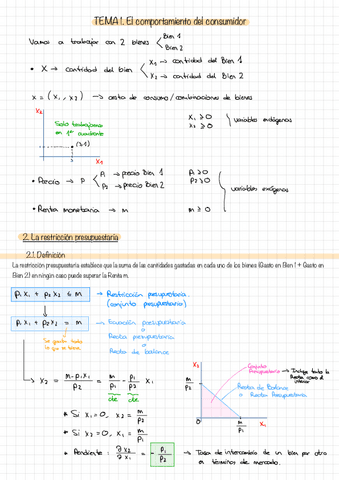 TEMA 1. El comportamiento del consumidor
Vamos a trabajar con 2 bienes
Bien 1
Bien 2
• X → cantidad del bien
X₁ → cantidad del Bien 1
X₂ → cantidad del Bien 2
X = (X₁, X₂) → cesta de consumo/combinaciones de bienes
X₂
Solo trabajamos
en 1er
cuadrante
(3,1)
3
X₁
X₁ ≥ 0
X₂ ≥ 0
variables endógenas
• Precio → P
P₁ → precio Bien 1
P₂ → precio Bien 2
P₁ ≥ 0
P₂ ≥ 0
variables exógenas
• Renta monetaria → m
m ≥ 0
2. La restricción presupuestaria
2.1. Definición
La restricción presupuestaria establece que la suma de las cantidades gastadas en cada uno de los bienes (Gasto en
Bien 1 + Gasto en
Bien 2) en ningún caso puede superar la Renta m.
P₁ X₁ + P₂ X₂ ≤ m → Restricción presupuestaria.
(conjunto presupuestario)
P₁ X₁ + P₂ X₂ = m → Ecuación presupuestaria
o
Recta presupuestaria
o
Recta de balance
Se gasta toda
lo que se tiene
→ X₂ = m-P₁X₁ / P₂ = m/P₂ - P₁/P₂ X₁
cte cte
* Si X₁=0, X₂ = m/P₂
* Si X₂=0, X₁ = m/P₁
* Pendiente: ∂X₂/∂X₁ = - P₁/P₂ → Tasa de intercambio de un bien por otro
en términos de mercado.
X₂
m/P₂
Conjunto
Presupuestario → Incluye toda la
Recta como el
interior
Recta de Balance
o Recta Presupuestaria
0
m/P₁
X₁